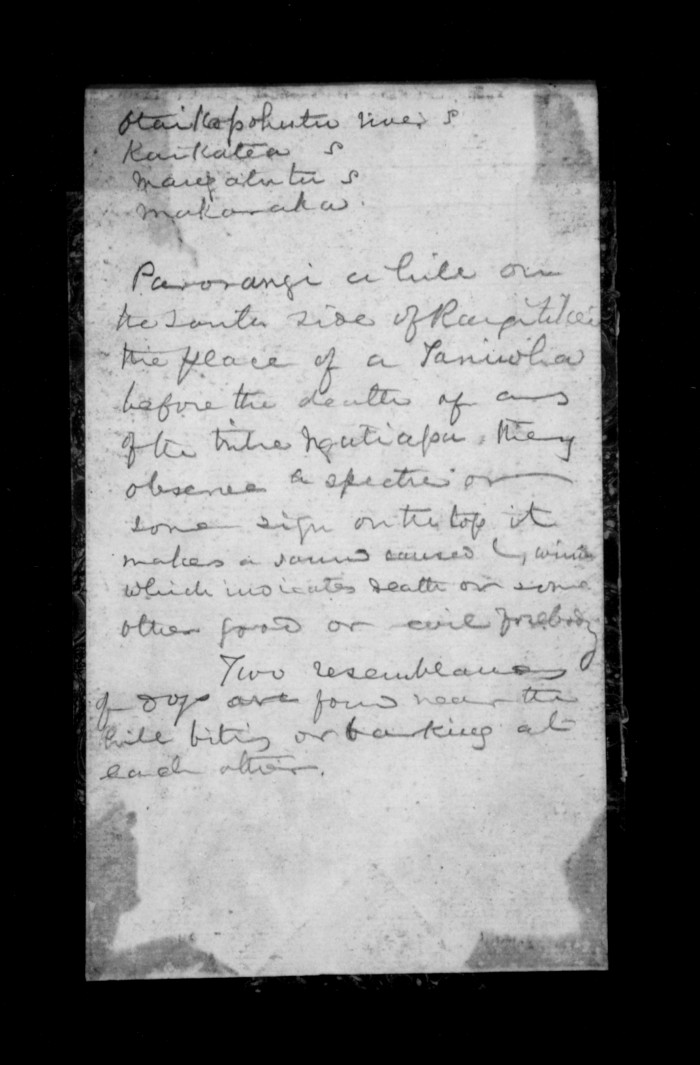 Otaikapohutu river S
Kaikatea S
Mangahutu S
Makaraka
Parorangi a hill on
the South side of Rangitikei
the place of a Taniwha
before the death of any
of the tribe Ngatiapa they
observe a spectre or
some sign on the top it
makes a sound caused by wind
which indicates death or some
other good or evil forebody
Two resemblances
of dogs are found near the
hill biting or barking at
each other.